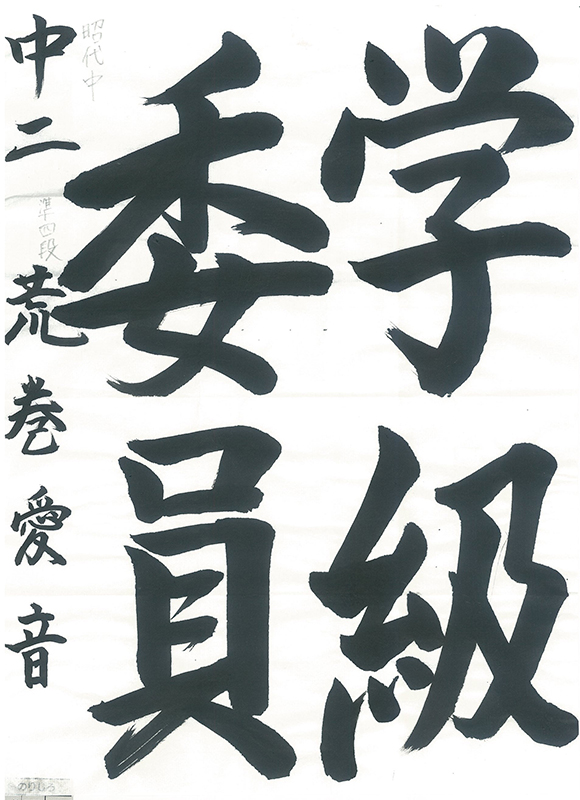 学級
委員
昭代中
準四段
中二 荒巻愛音
のりしろ